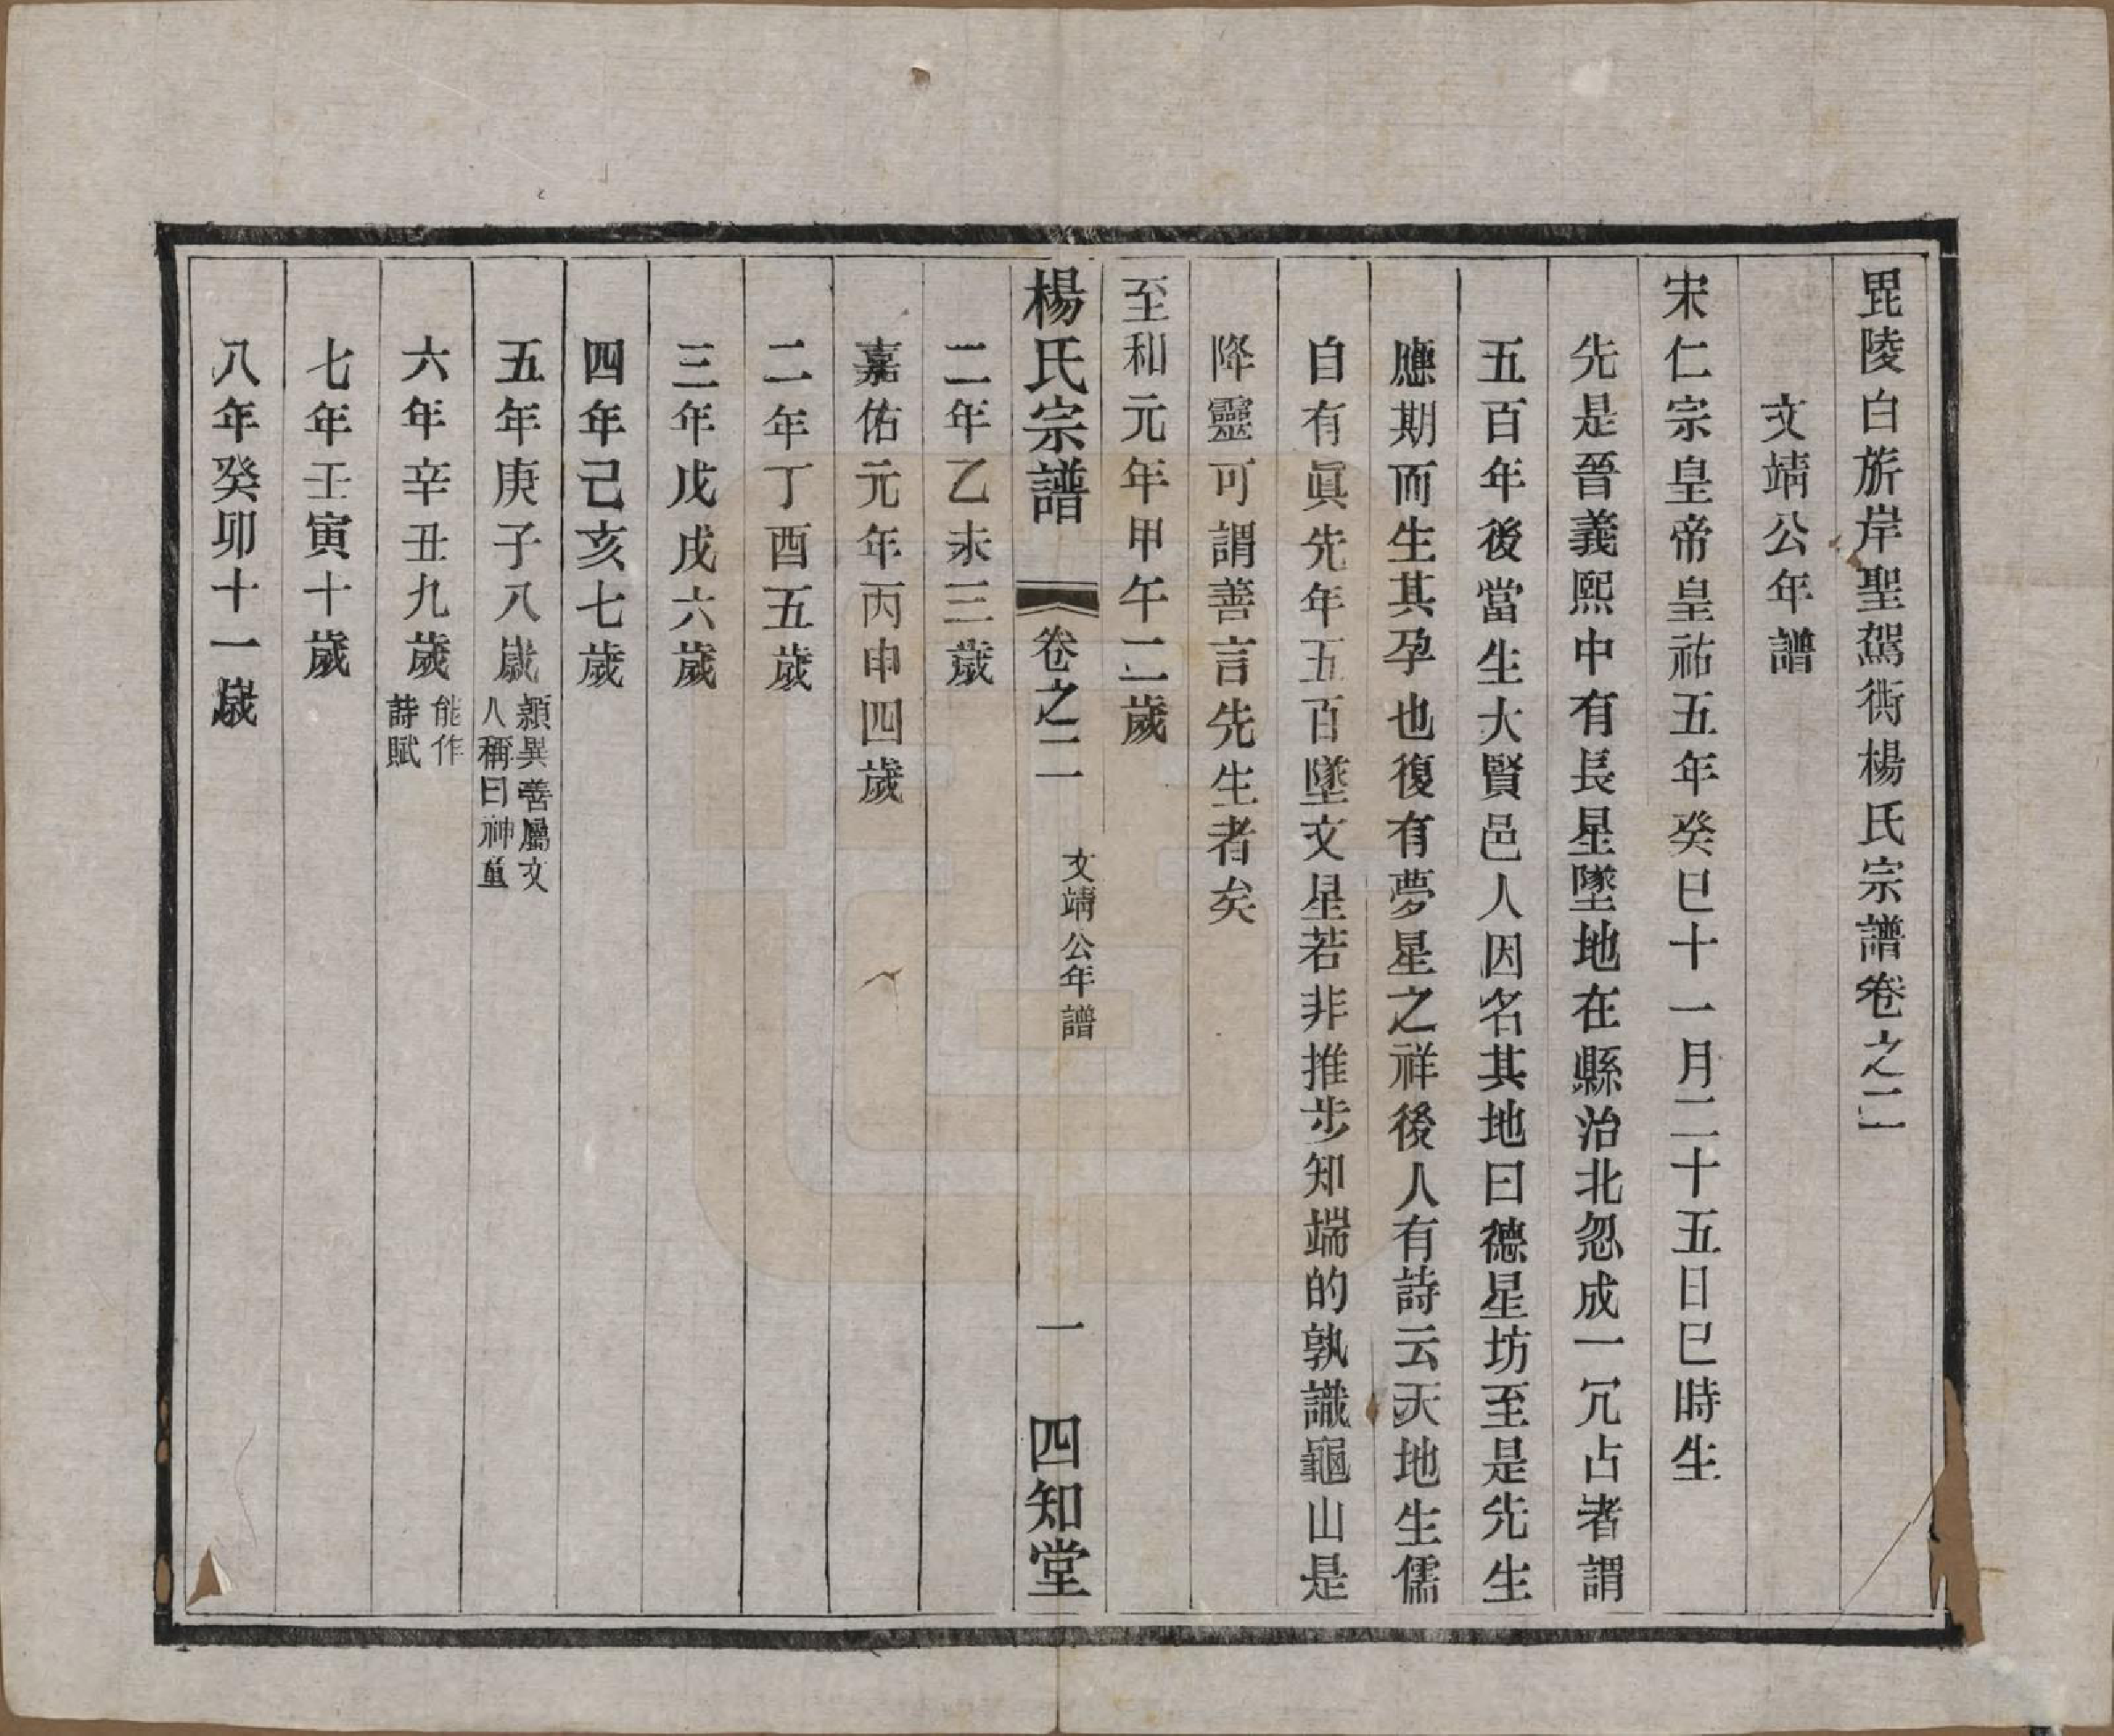 毘陵白旂岸聖駕衖楊氏宗譜卷之二
文靖公年譜
宋仁宗皇帝皇祐五年癸巳十一月二十五日巳時生
先是晉義熙中有長星墜地在縣治北忽成一冗占者謂
五百年後當生大賢邑人因名其地曰德星坊至是先生
應期而生其孕也復有夢星之祥後人有詩云天地生儒
自有眞先年五百墜文星若非推步知端的孰識龜山是
降靈可謂善言先生者矣
至和元年甲午二歲
楊氏宗譜 卷之二 文靖公年譜 一 四知堂
二年乙未三歲
嘉佑元年丙申四歲
二年丁酉五歲
三年戊戌六歲
四年己亥七歲
五年庚子八歲 穎異善屬文
人稱曰神童
六年辛丑九歲 能作
詩賦
七年壬寅十歲
八年癸卯十一歲